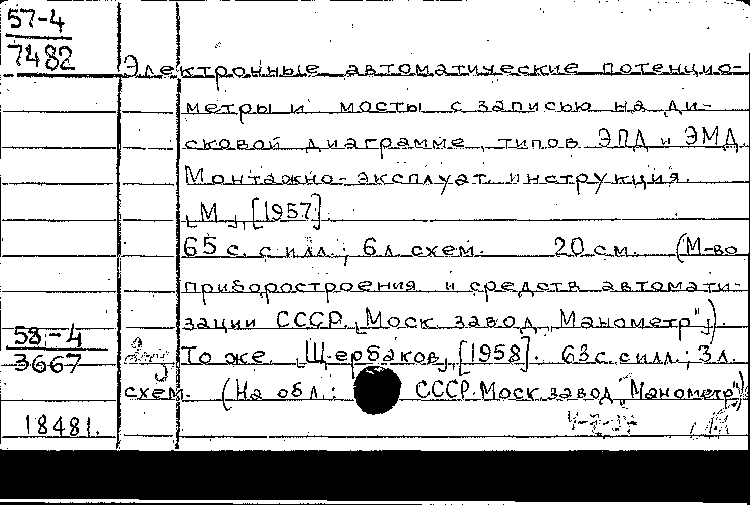 57-4
7482
Электронные автоматические потенцио-
метры и мосты с записью на ди-
сковой диаграмме, типов ЭПД и ЭМД.
Монтажно-эксплуат. инструкция.
[М.], [1957].
65 с. с илл.; 6 л. схем. 20 см. (М-во
приборостроения и средств автомати-
зации СССР. [Моск. завод „Манометр"]).
58-4
3667
То же. [Щербаков], [1958]. 63 с. с илл.; 3 л.
схем. (На обл.: СССР. Моск. завод „Манометр")
18481.